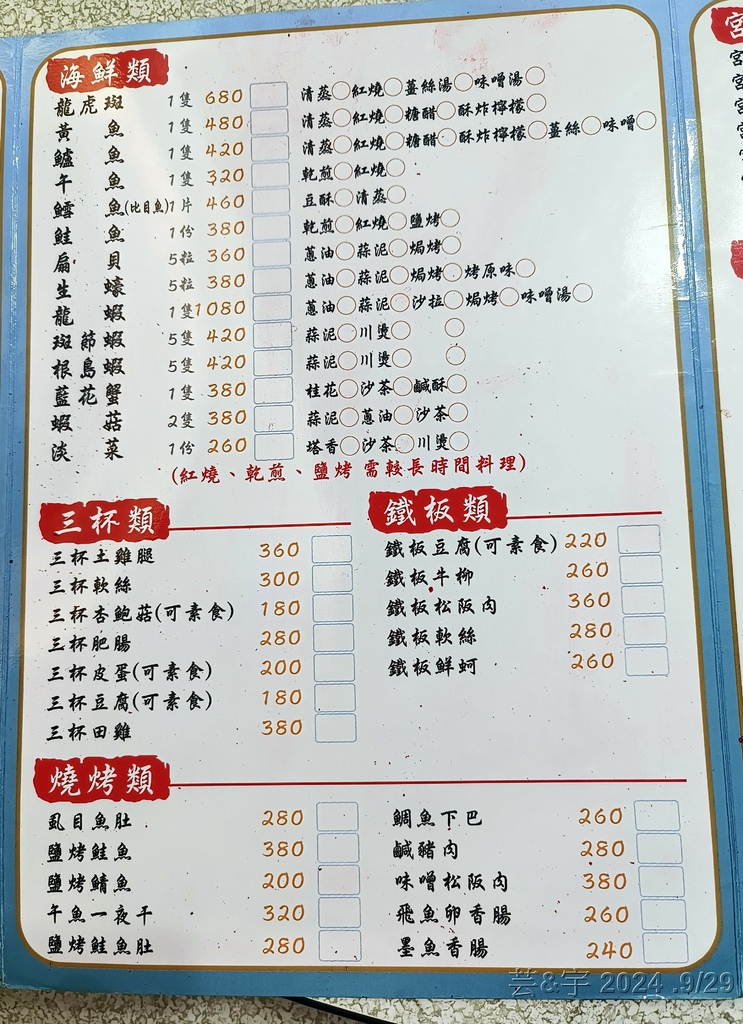 海鮮類
龍虎斑 1隻 680 清蒸○紅燒○薑絲湯○味噌湯○
黃魚 1隻 480 清蒸○紅燒○糖醋○酥炸檸檬○
鱸魚 1隻 420 清蒸○紅燒○糖醋○酥炸檸檬○薑絲○味噌○
午魚 1隻 320 乾煎○紅燒○
鱈魚(比目魚) 1片 460 豆酥○清蒸○
鮭魚 1份 380 乾煎○紅燒○鹽烤○
扇貝 5粒 360 蔥油○蒜泥○焗烤○
生蠔 5粒 380 蔥油○蒜泥○焗烤○烤原味○
龍蝦 1隻 1080 蔥油○蒜泥○沙拉○焗烤○味噌湯○
斑節蝦 5隻 420 蒜泥○川燙○ ○
根島蝦 5隻 420 蒜泥○川燙○ ○
藍花蟹 1隻 380 桂花○沙茶○鹹酥○
蝦菇 2隻 380 蒜泥○蔥油○沙茶○
淡菜 1份 260 塔香○沙茶○川燙○
(紅燒、乾煎、鹽烤 需較長時間料理)
三杯類
三杯土雞腿 360
三杯軟絲 300
三杯杏鮑菇(可素食) 180
三杯肥腸 280
三杯皮蛋(可素食) 200
三杯豆腐(可素食) 180
三杯田雞 380
鐵板類
鐵板豆腐(可素食) 220
鐵板牛柳 260
鐵板松阪肉 360
鐵板軟絲 280
鐵板鮮蚵 260
燒烤類
虱目魚肚 280
鹽烤鮭魚 380
鹽烤鯖魚 200
午魚一夜干 320
鹽烤鮭魚肚 280
鯛魚下巴 260
鹹豬肉 280
味噌松阪肉 380
飛魚卵香腸 260
墨魚香腸 240
宮
芸&宇 2024 .9/29